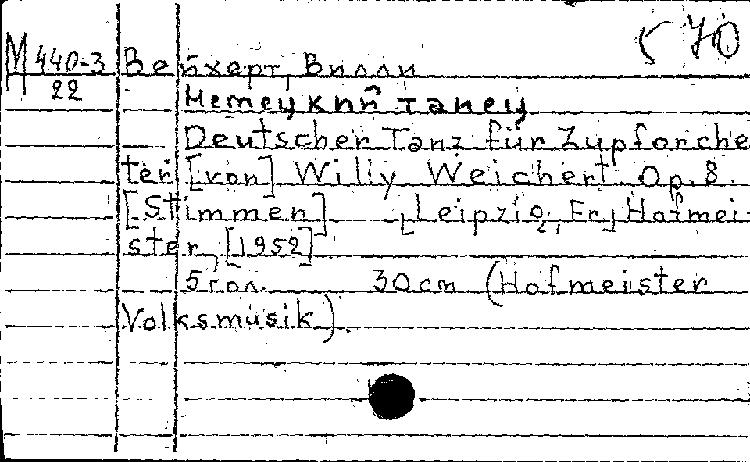 570
М 440-3 Вейхерт, Вилли
22
Немецкий танец
Deutscher Tanz für Zupforche
ter [von] Willy Weichert Op. 8.
[Stimmen] [Leipzig, Fr. Hofmei-
ster, [1952]
5 гол. 30 cm (Hofmeister
Volksmusik).